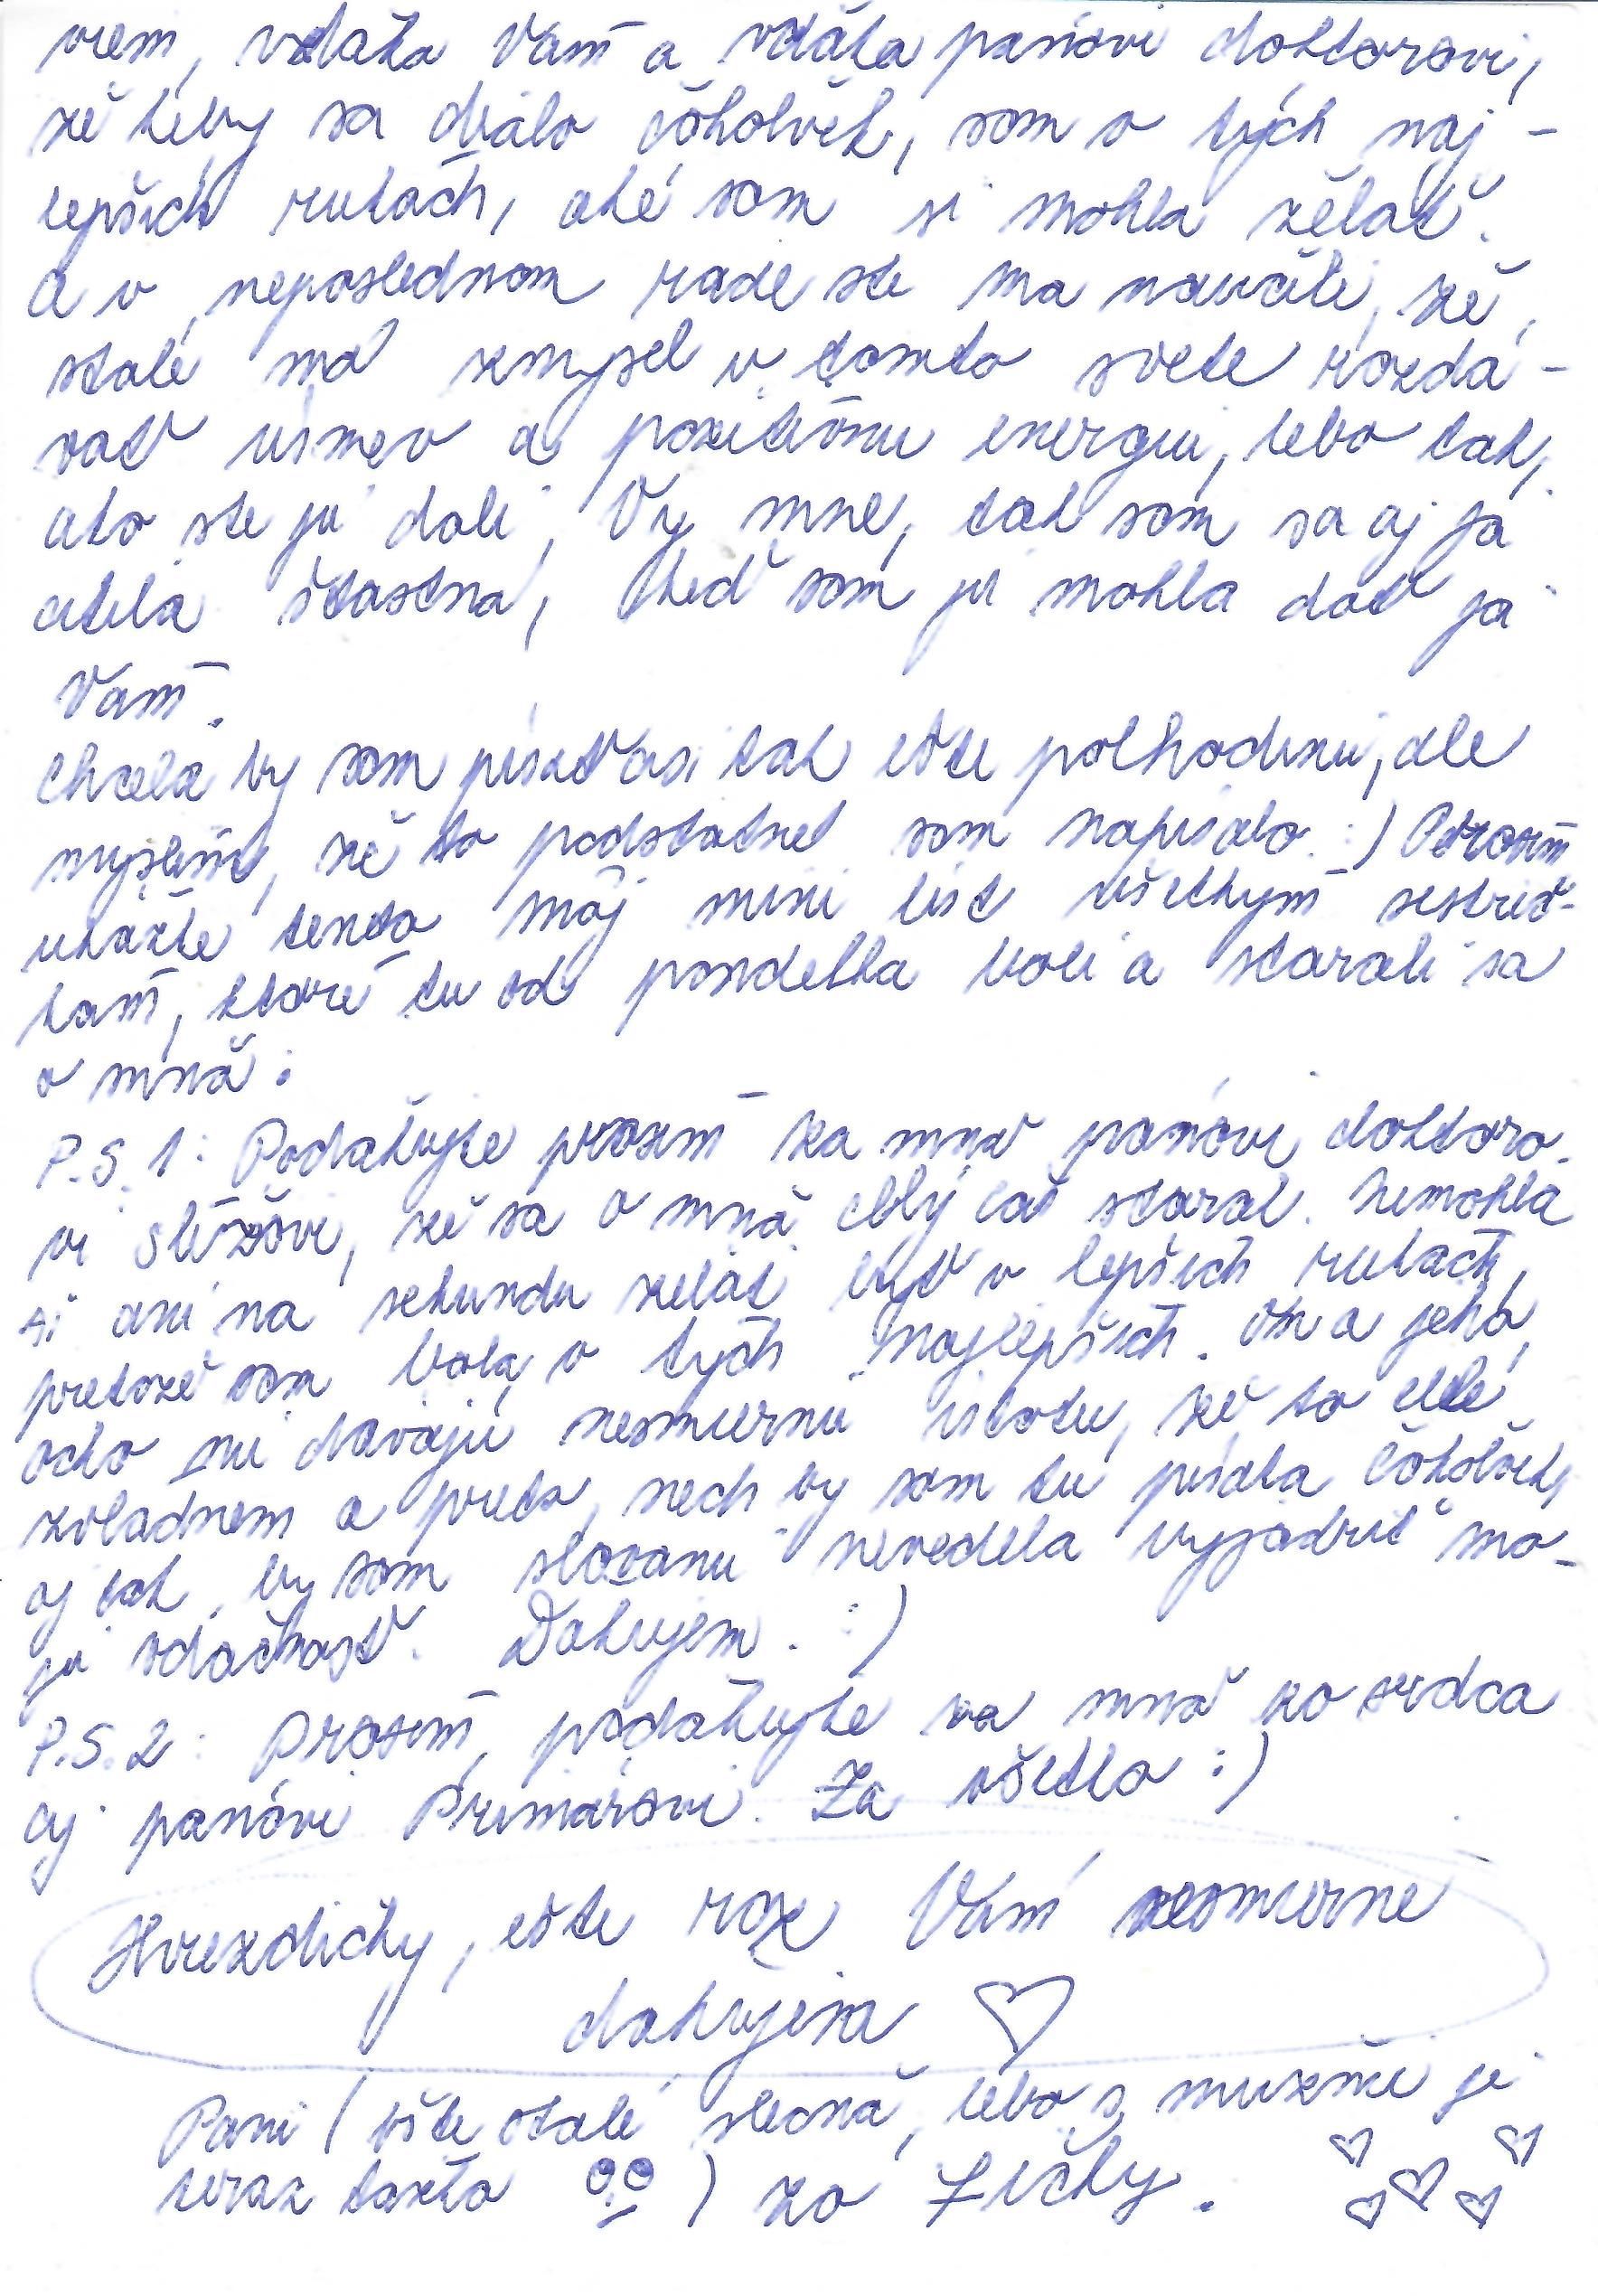 viem, vďaka Vám a vďaka pánovi doktorovi,
že keby sa dialo čokoľvek, som v tých naj-
lepších rukách, aké som si mohla želať.
A v neposlednom rade ste ma naučili, že
stále má zmysel v tomto svete rozdá-
vať úsmev a pozitívnu energiu, lebo tak,
ako ste ju dali Vy mne, tak som sa aj ja
cítila šťastná, keď som ju mohla dať ja
Vám.
Chcela by som písať asi tak ešte polhodinu, ale
myslím, že to podstatné som napísala :) Prosím
ukážte tento môj mini list všetkým sestrič-
kám, ktoré tu od pondelka boli a starali sa
o mňa.
P.S. 1: Poďakujte prosím za mňa pánovi doktoro-
vi Slížovi, že sa o mňa celý čas staral. Nemohla
si ani na sekundu želať byť v lepších rukách,
pretože som bola v tých najlepších. On a jeho
mi dávajú nesmiernu istotu, že to ešte
zvládnem a preto, nech by som tu písala čokoľvek,
aj tak by som slovami nevedela vyjadriť mo-
ju vďačnosť. Ďakujem. :)
P.S. 2: Prosím, poďakujte za mňa zo srdca
aj pánovi Primárovi. Za všetko :)
Hviezdičky, ešte raz Vám nesmierne
ďakujem ♡
Pani (ešte stále slečna, lebo s mužmi je
teraz ťažko ) zo Žičky.